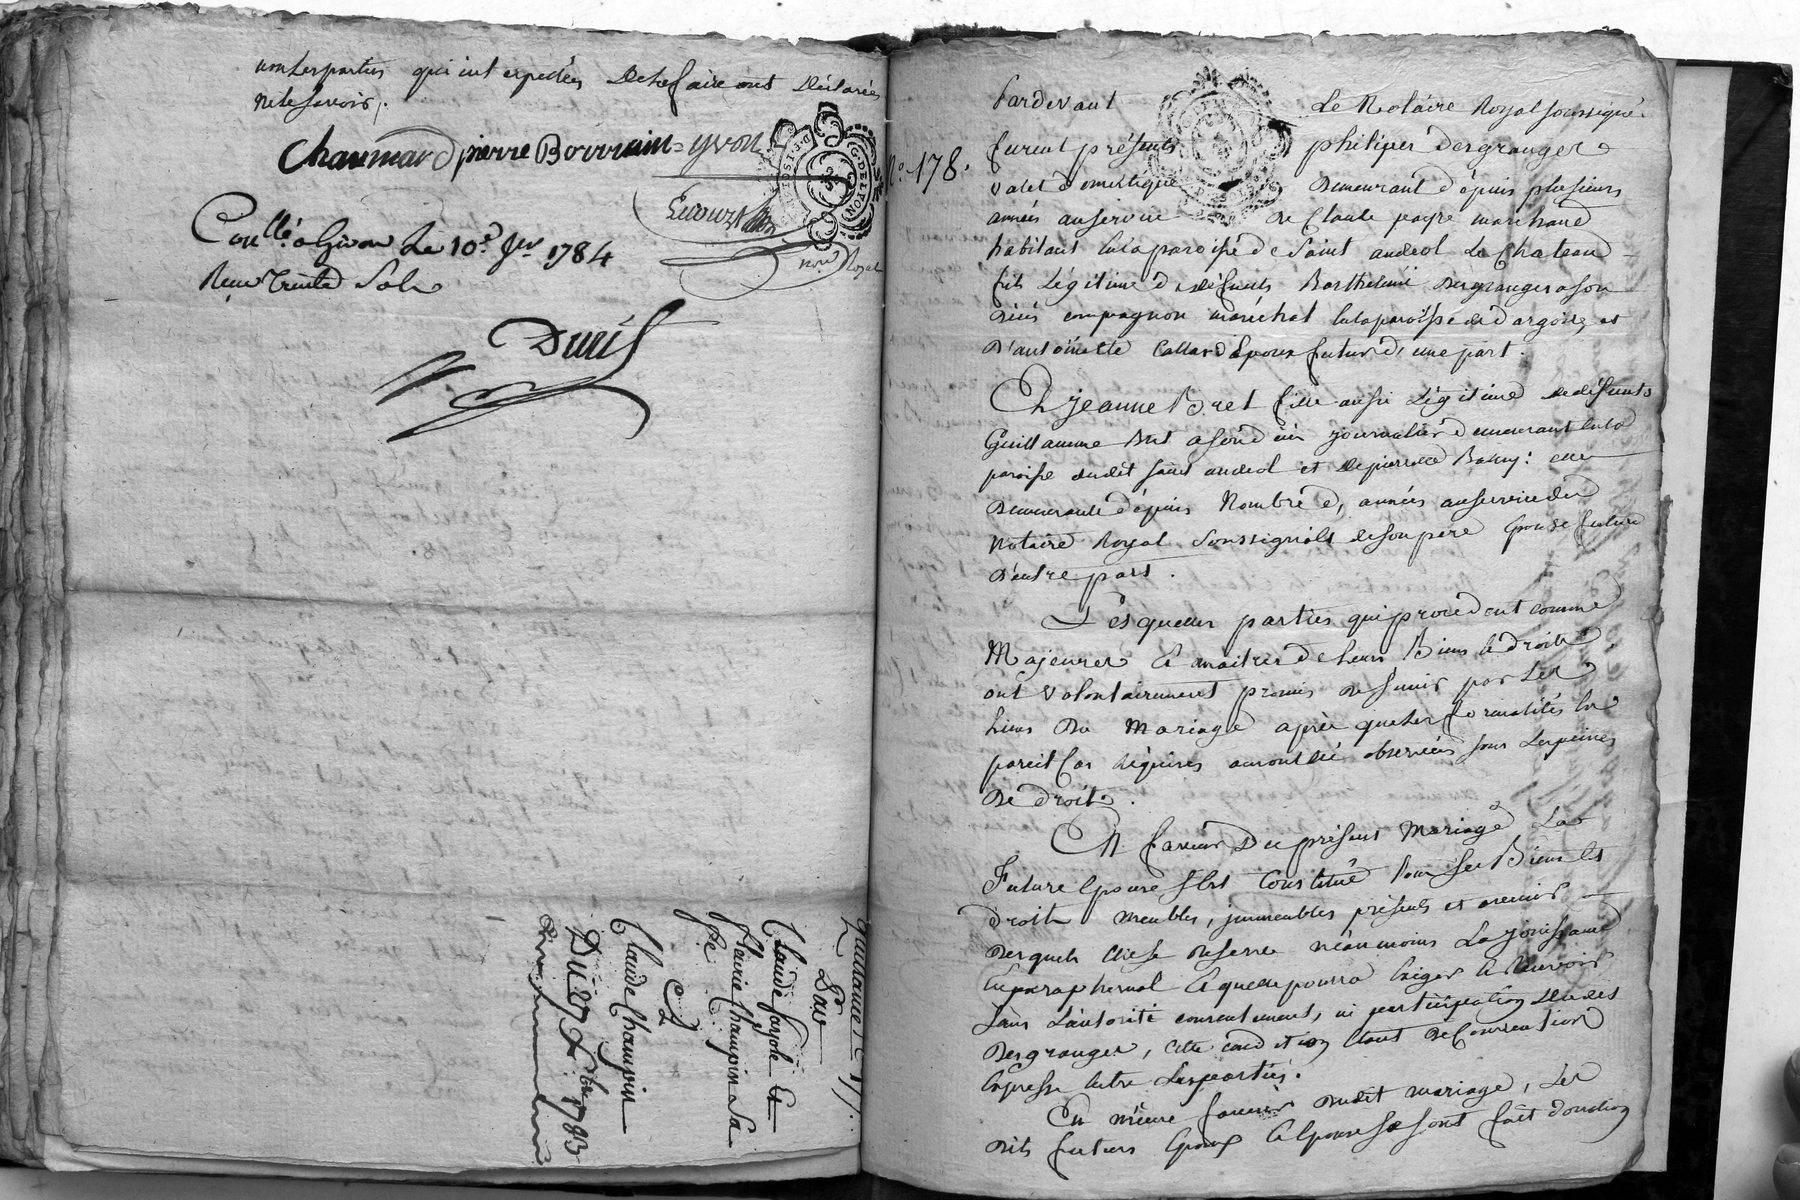 non les parties qui int expediées de ce faire ont déclarées
ne le scavoir.
Chaumard pierre Bovvrain = yvon
not.re Royal
Con.llé a Givors Le 10.e Jer 1784
Reçu trente Sols
G. DE LYON
N.o 178.
Quittance
Pour
Claude farjole Et
fleurie Champin Sa
fe
C
Claude Champin
Du 27 Xbre 1783
Pardevant Le Notaire Royal soussigné
furent présents philipes desgranges
valet domestique Demeurant depuis plusieurs
années au service De Claude payre marchand
habitant en la paroisse de Saint andeol Le Chateau
fils Légitime de defunts Barthelemi Desgranges a son
deces compagnon maréchal en la paroisse de d'argoire et
D'antoinette Collard Epoux futur d'une part.
Et jeanne Bret fille aussi Légitime de defunts
Guillaume Bret a son décès journalier demeurant en la
paroisse dudit saint andeol et de pierrette : elle
Demeurante depuis Nombre d'années au service du
Notaire Royal Soussigné et de son pere Epouse future
D'autre part.
Lesquelles parties qui procèdent comme
Majeures et maitres de leurs Biens et droits,
ont volontairement promis de s'unir par Les
liens Du Mariage après que les formalités en
pareil Cas réquises auront été observées sous les peines
De droit.
En faveur Du présent Mariage, La
Future Epouse s'est Constitué tous ses Biens et
droits meubles, immeubles présents et avenir
Desquels Elle se réserve néanmoins La jouissance
En paraphernal Et quelle pourra Exiger et Recevoir
sans L'autorité consentement, ni participation dudit
Desgranges, cette condition Etant De Convention
Expresse Entre Les parties.
En même faveur Dudit mariage, Les
Dits futurs Epoux Et Epouse se sont fait donation